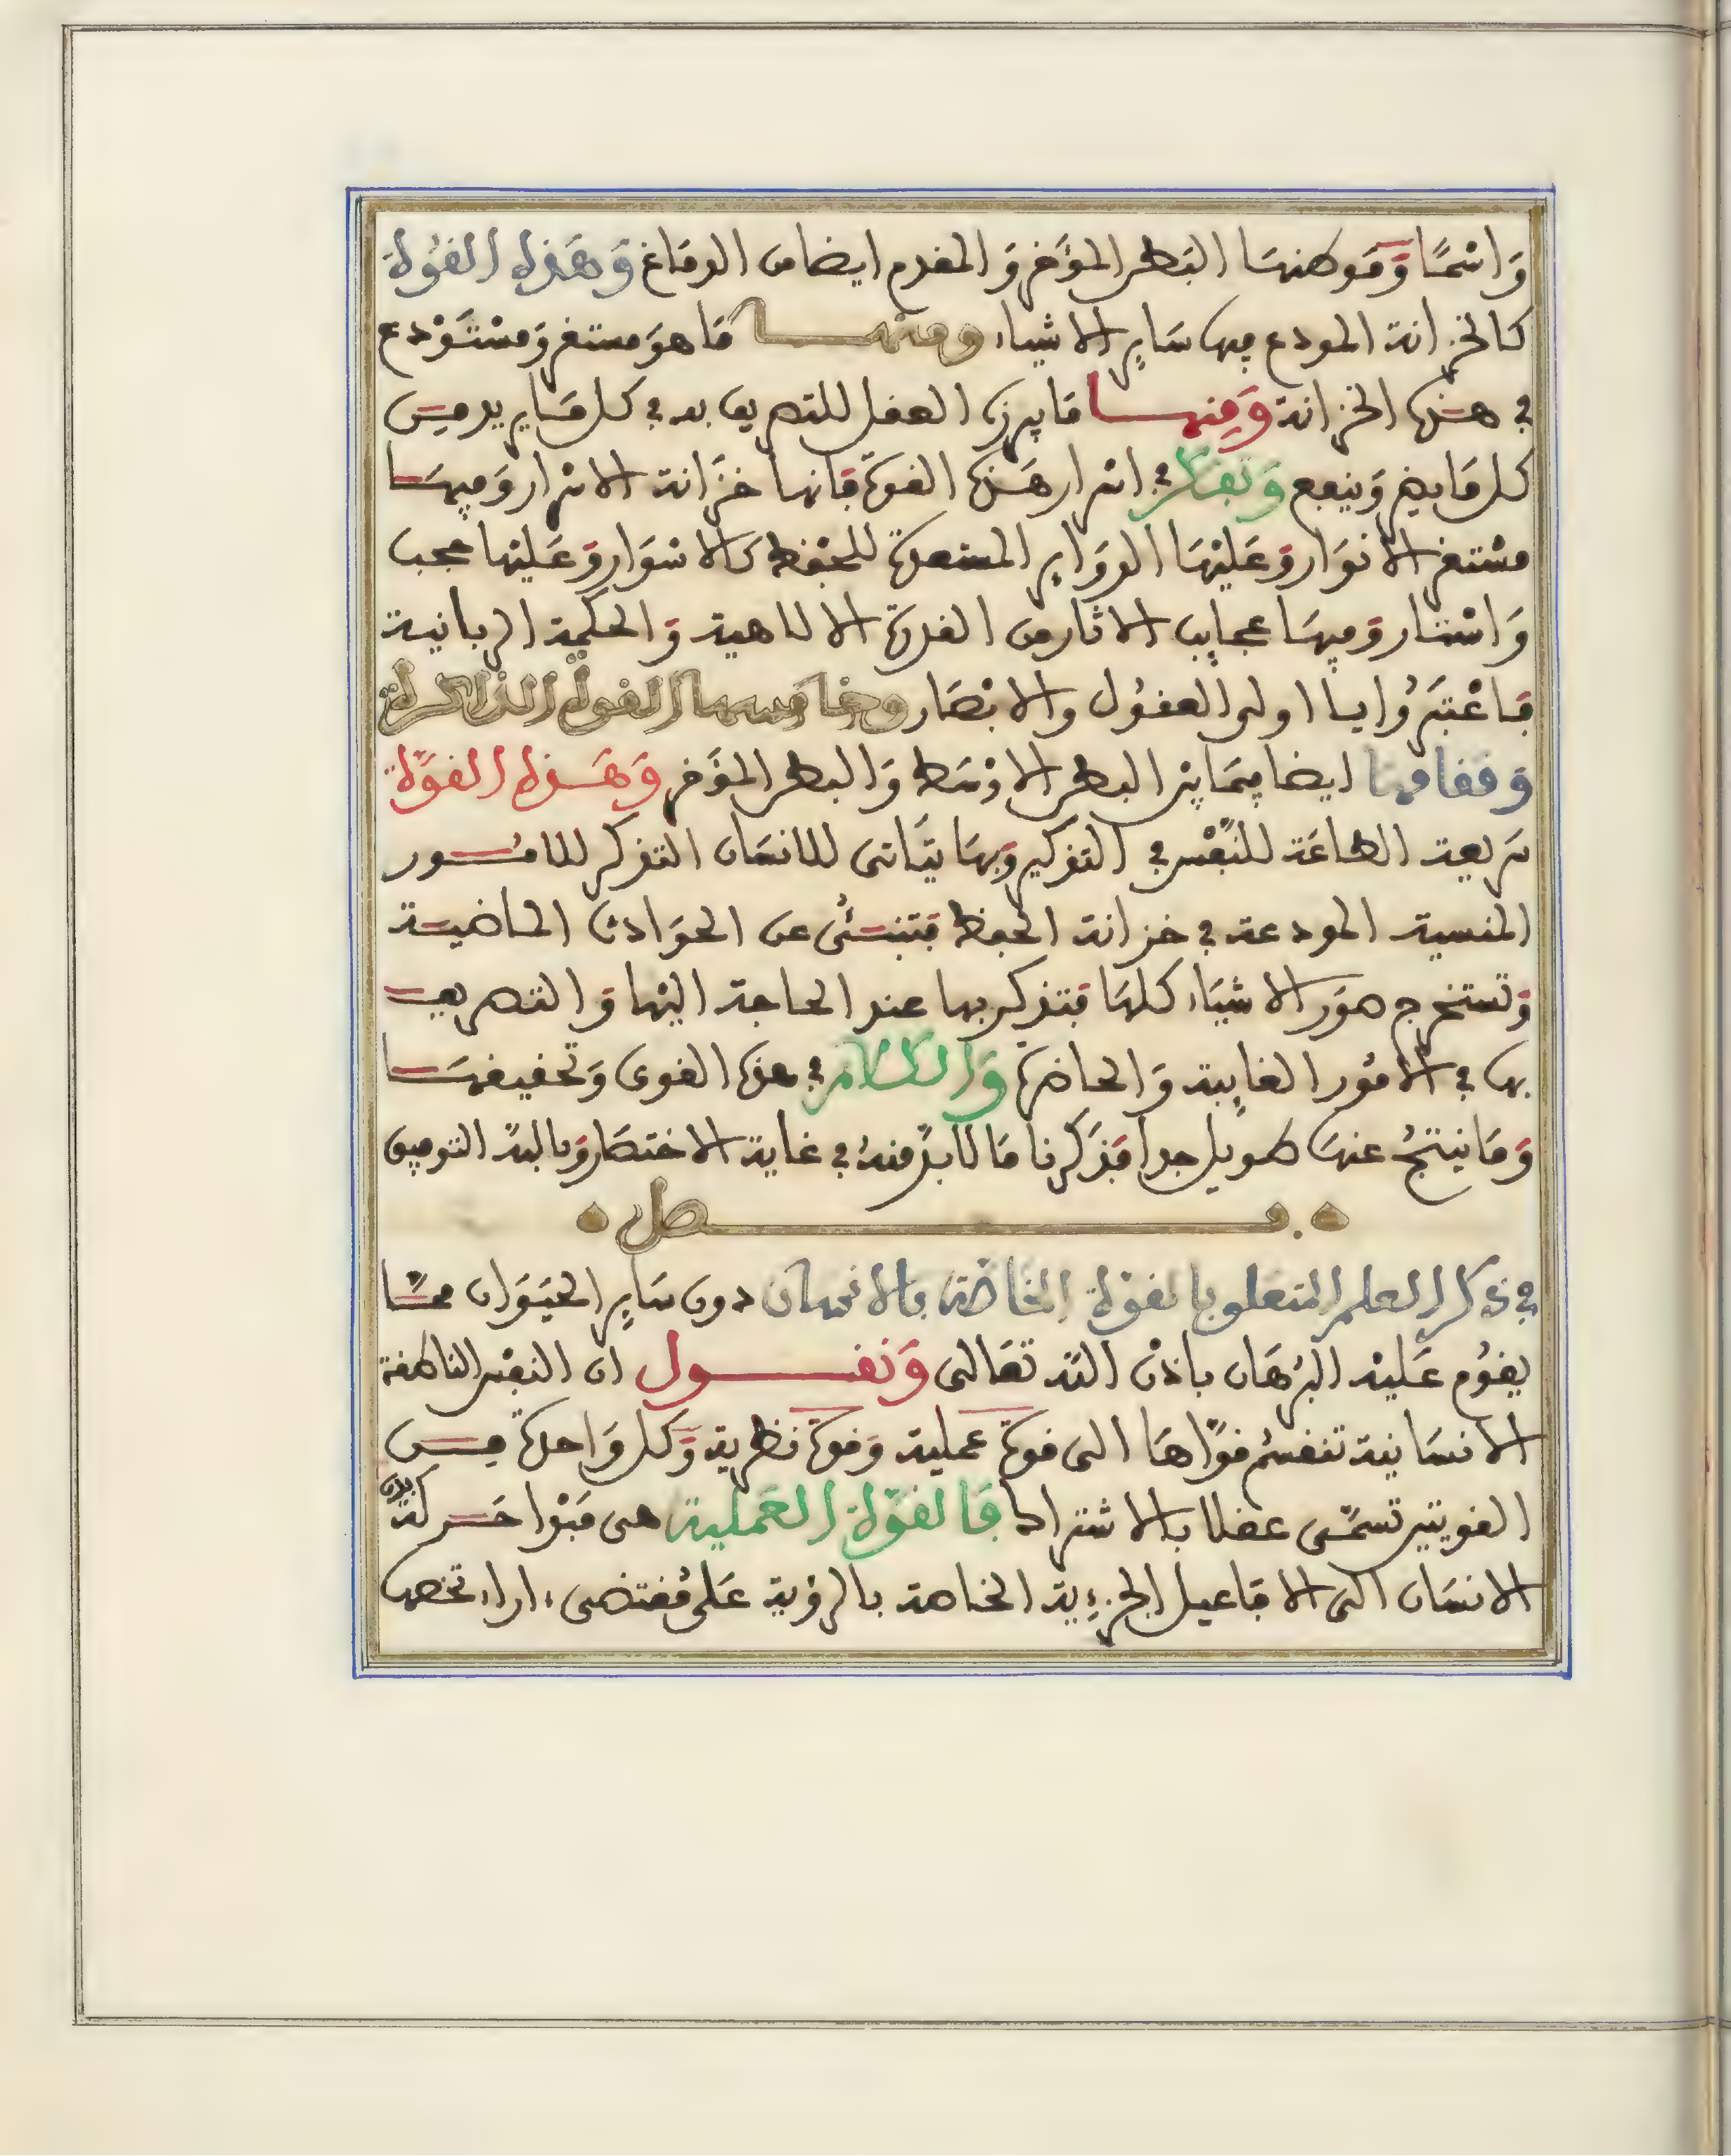 وَاسْمًا وَمَوطنهَا البَطن المؤَخر وَالمقدم ايضا من الدمَاغ وَهَذه القُوة
كالخزانة المودع فيها سَاير الاشياء ومنهــا مَا هوَ مستقر وَمسْتَوْدع
في هذه الخزانة وَمِنهــا مَا يبرزه العقل للتصريف به في كل مَا يريد مِن
كل مَا يضر وَينفع وَتفكر في اسْرار هَذه القوة فَانها خزَانة الاسْرار وَفيهَا
مسْتقر الانوَار وَعَليْهَا الدوَاير المستعدة للحِفْظ كالاسْوَار وَعَليْها حجب
وَاسْتَار وَفيهَا عجايب الاثار من القدرَة الالاهية وَالحكمة الربانية
فاعْتَبِرُوا يا اولى العقُول والابْصَار وخامسها القوة الذاكرة
وَمقامها ايضا فيمَا بيْن البطن الاوْسَط وَالبطن المؤَخر وَهَذه القوَّة
سَريعة الطاعَة للنَّفْس في التذكير وَبهَا يتَأتى للانسَان التذكر للامُور
المنسية المودعة في خزانة الحفظ فتنبئُ عن الحوَادث الماضية
وَتستخرج صوَر الاشيَاء كلهَا فتذكر بها عند الحاجة اليْها وَالتصريف
بها في الامُور الغايبة وَالحاضرة وَالكلام في هذه القوى وَتحقيقهَا
وَمَا ينتجُ عنهَا طويل جدا فذَكَرنا مَا لابدّ منهُ في غاية الاختصَار وَبالله التوفيق
فــصل
في ذكر العلم المتعلق بالقوة الخاصّة بالانسان دون سَاير الحيَوَان ممَّا
يقوُم عَليْه البُرهَان باذن الله تعَالى وَنقــول ان النفْس الناطقة
الانسَانية تنقسمُ قوَّاهَا الى قوة عملية وَقوة نظرية وَكل وَاحدة مِن
القويتين تسمَّى عقلا بالاشتراك فَالقوّة العَملية هى مَبْدا حَركة بدن
الانسَان الى الافاعيل الجزءية الخاصة بالرؤية عَلى مُقتضى ءاراء تخصها